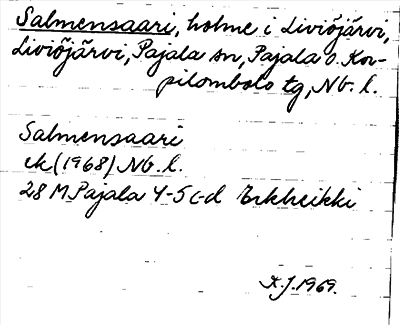 Salmensaari, holme i Liviöjärvi,
Liviöjärvi, Pajala sn, Pajala o. Kor-
pilombolo tg, Nb. l.
Salmensaari
ek (1968) Nb. l.
28 M Pajala 4-5 c-d Erkheikki
K.J. 1969.